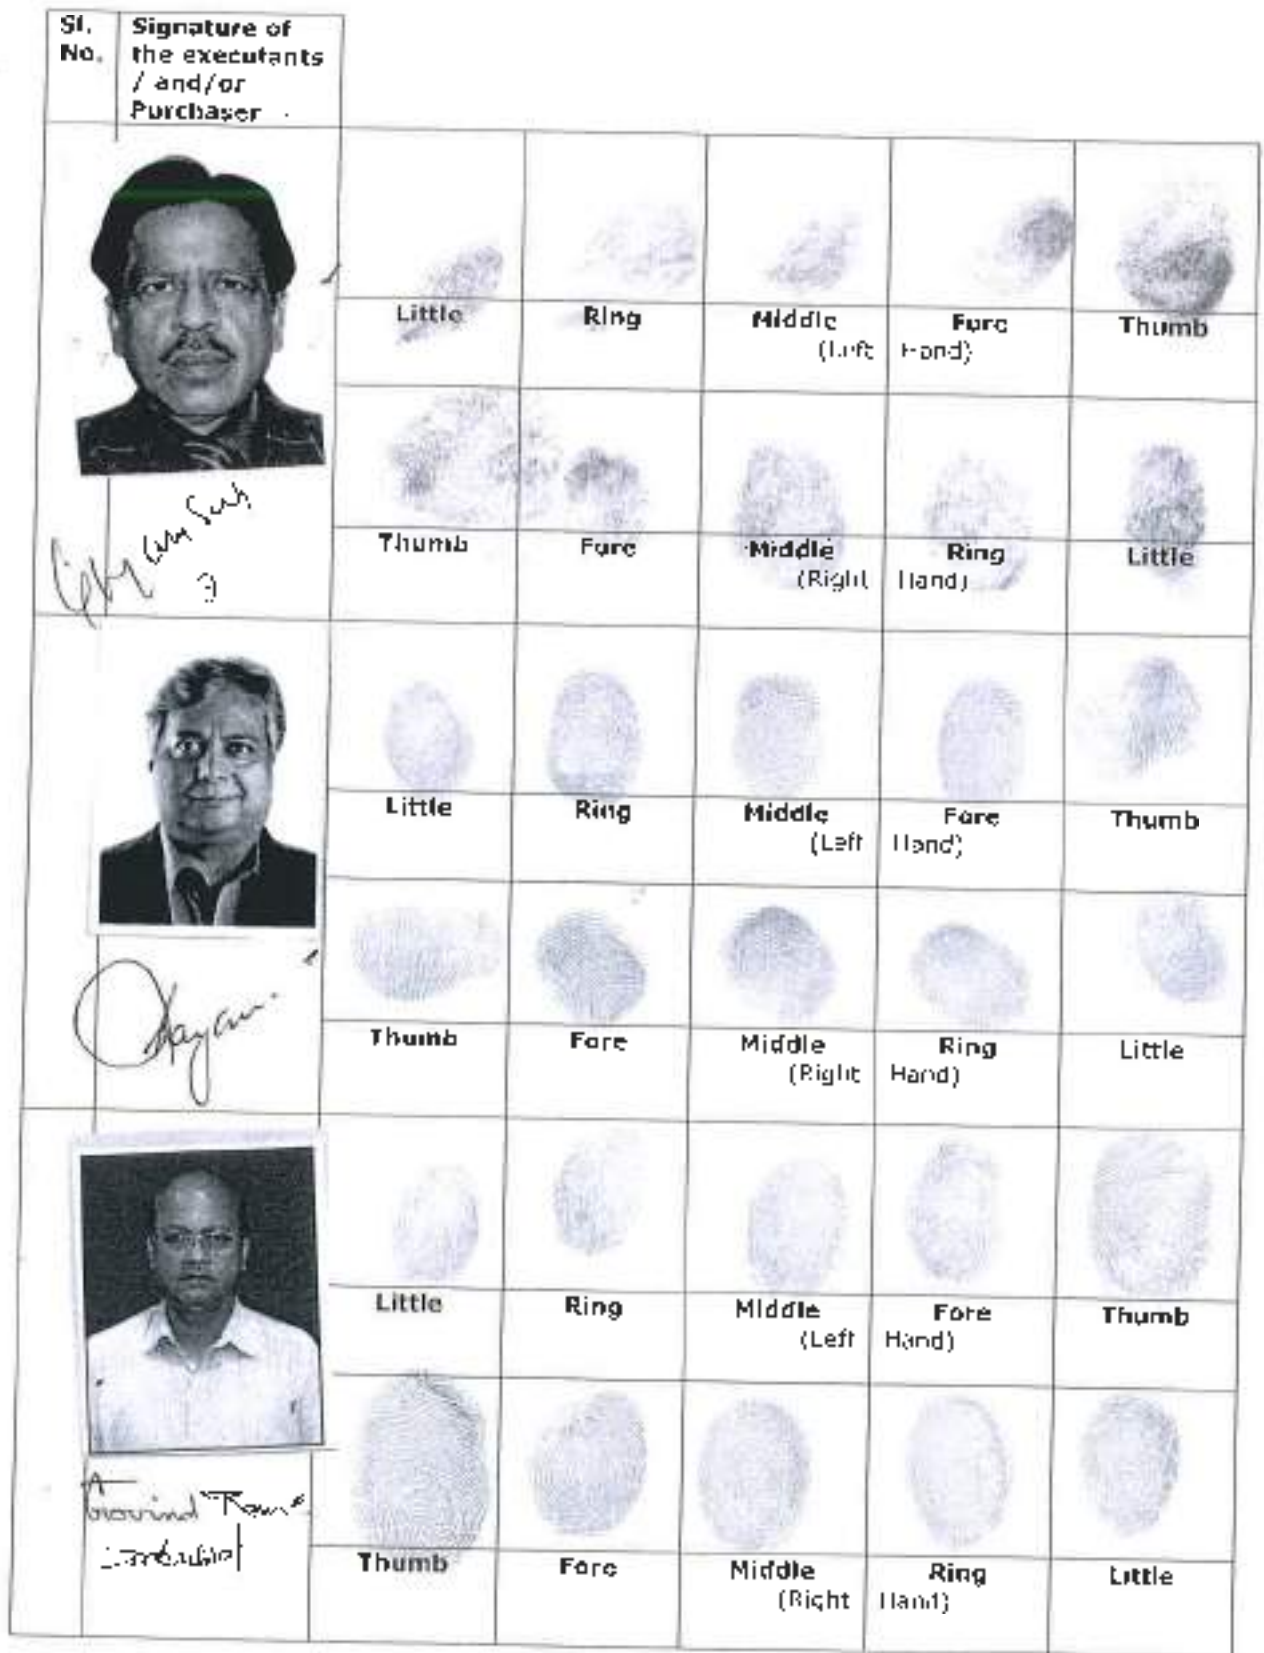 Sl. No.
Signature of the executants / and/or Purchaser
Little Ring Middle Fore Thumb
(Left Hand)
Thumb Fore Middle Ring Little
(Right Hand)
Little Ring Middle Fore Thumb
(Left Hand)
Thumb Fore Middle Ring Little
(Right Hand)
Little Ring Middle Fore Thumb
(Left Hand)
Thumb Fore Middle Ring Little
(Right Hand)